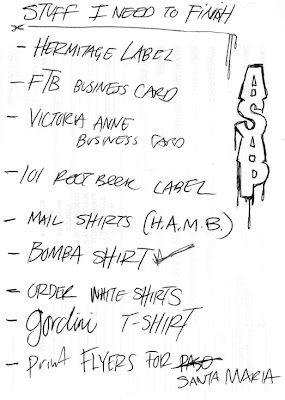 STUFF I NEED TO FINISH
- HERMITAGE LABEL
- FTB BUSINESS CARD
- VICTORIA ANNE
BUSINESS CARD
- 101 ROOT BEER LABEL
- MAIL SHIRTS (H.A.M.B.)
- BOMBA SHIRT ✓
- ORDER WHITE SHIRTS
- gordini T-SHIRT
- PRINT FLYERS FOR PASO
SANTA MARIA
ASAP